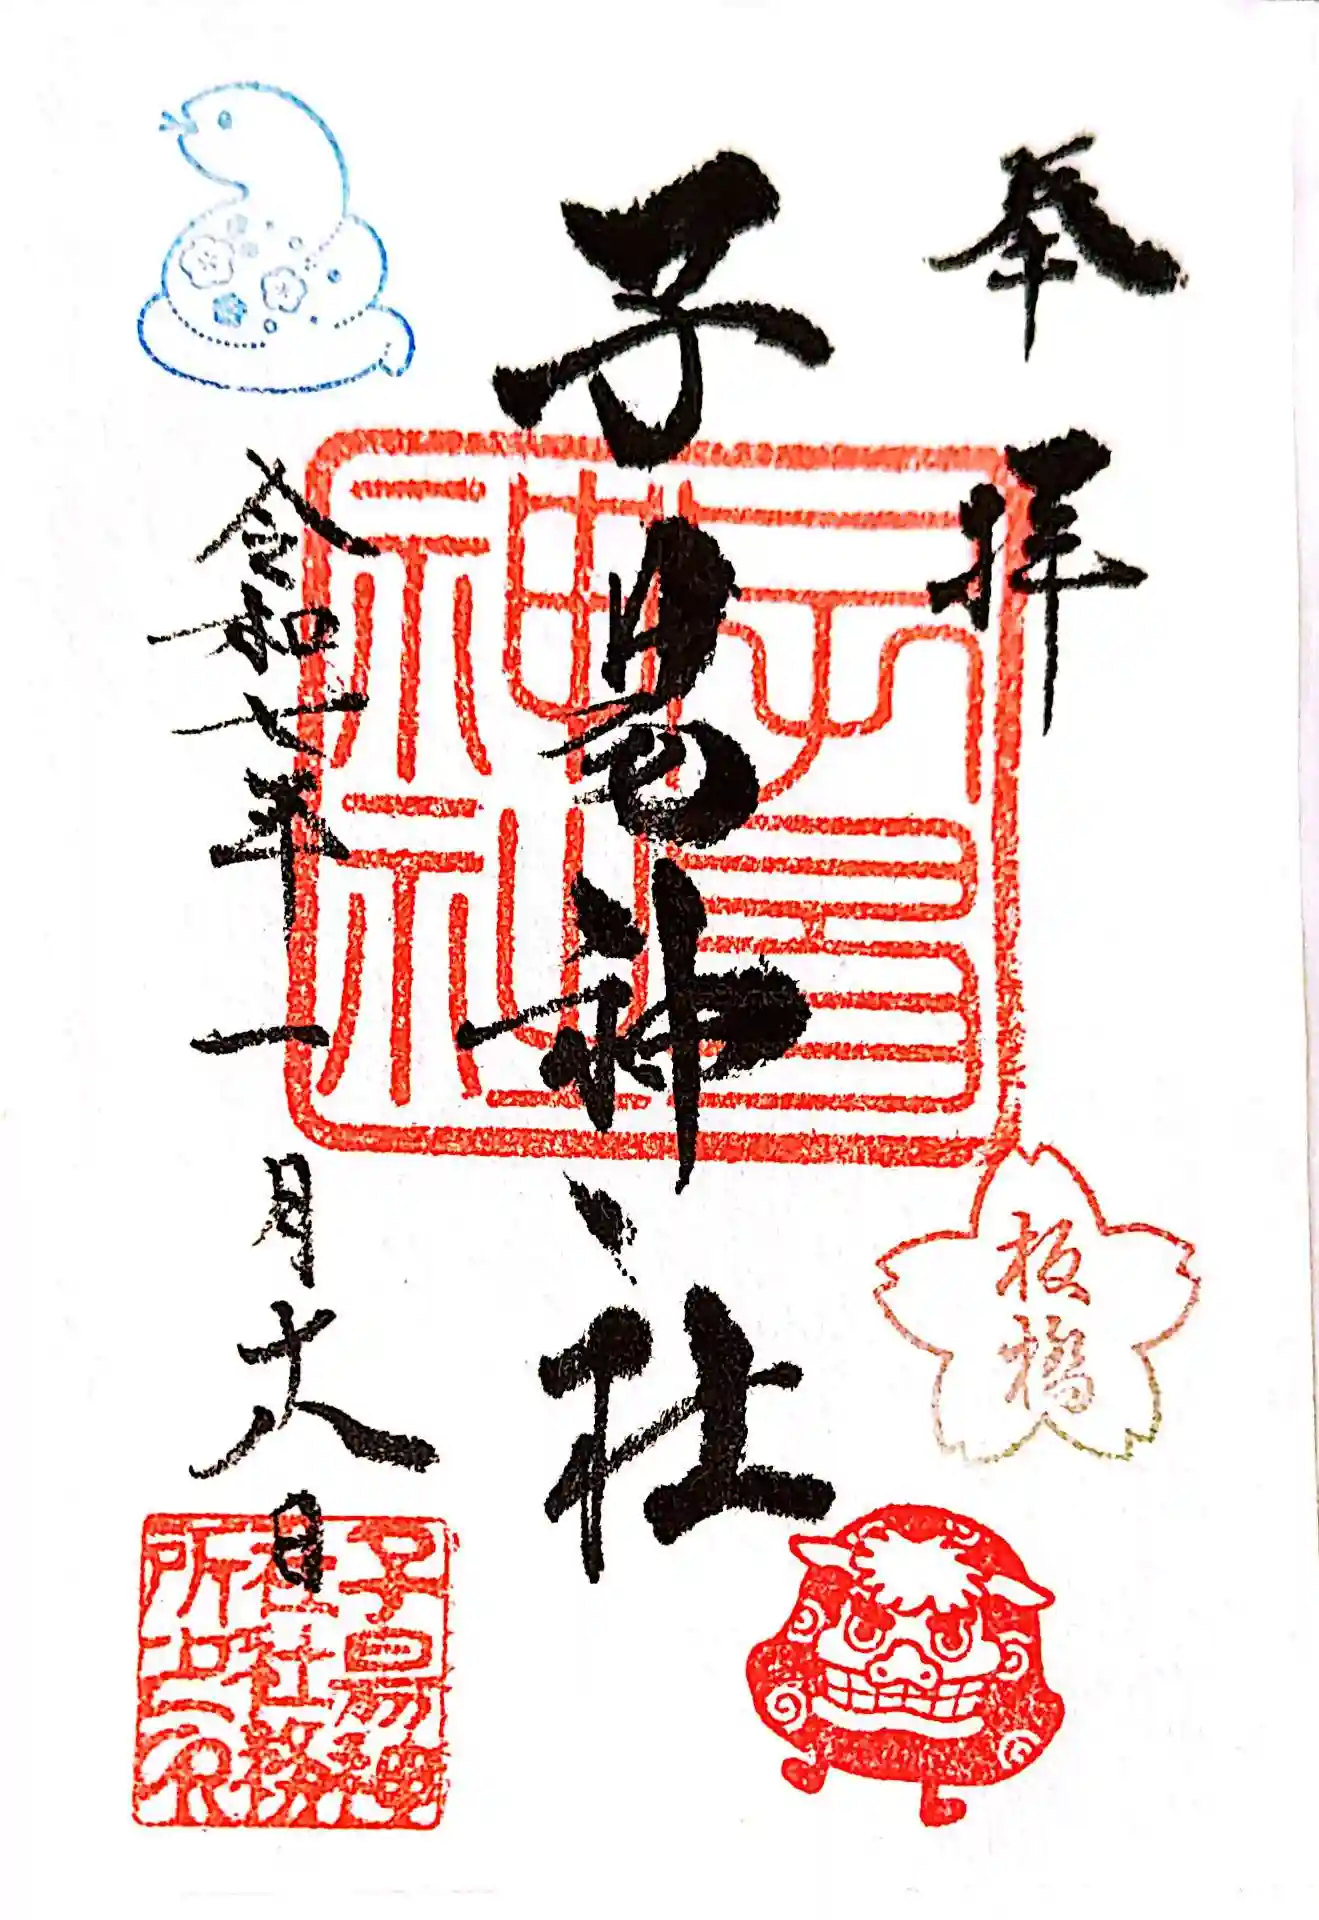 奉拝
板橋
子易神社
子易
神社
令和七年一月十八日
子易神
社社務
所之印